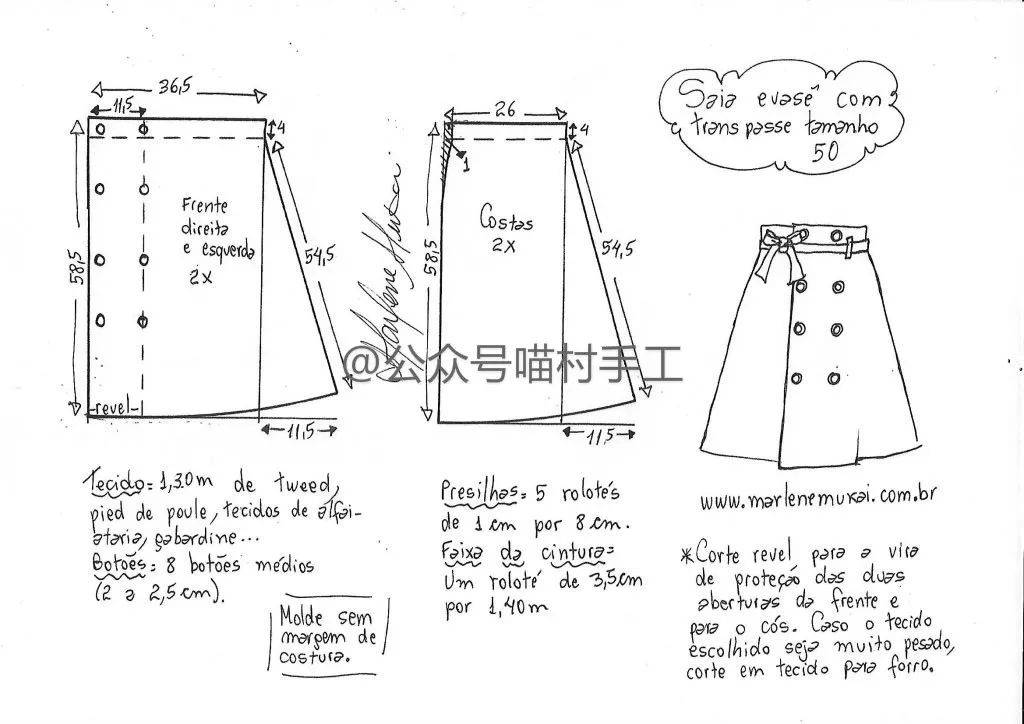 36,5
11,5
4
58,5
54,5
Frente
direita
e esquerda
2x
revel
11,5
26
4
1
58,5
54,5
Costas
2x
11,5
Marlene Mukai
@公众号喵村手工
Saia evasê com
transpasse tamanho
50
www.marlenemukai.com.br
Tecido= 1,30m de tweed,
pied de poule, tecidos de alfai-
ataria, gabardine...
Botões= 8 botões médios
(2 a 2,5cm).
Molde sem
margem de
costura.
Presilhas= 5 rolotês
de 1cm por 8cm.
Faixa da cintura=
Um roloté de 3,5cm
por 1,40m
*Corte revel para a vira
de proteção das duas
aberturas da frente e
para o cós. Caso o tecido
escolhido seja muito pesado,
corte em tecido para forro.